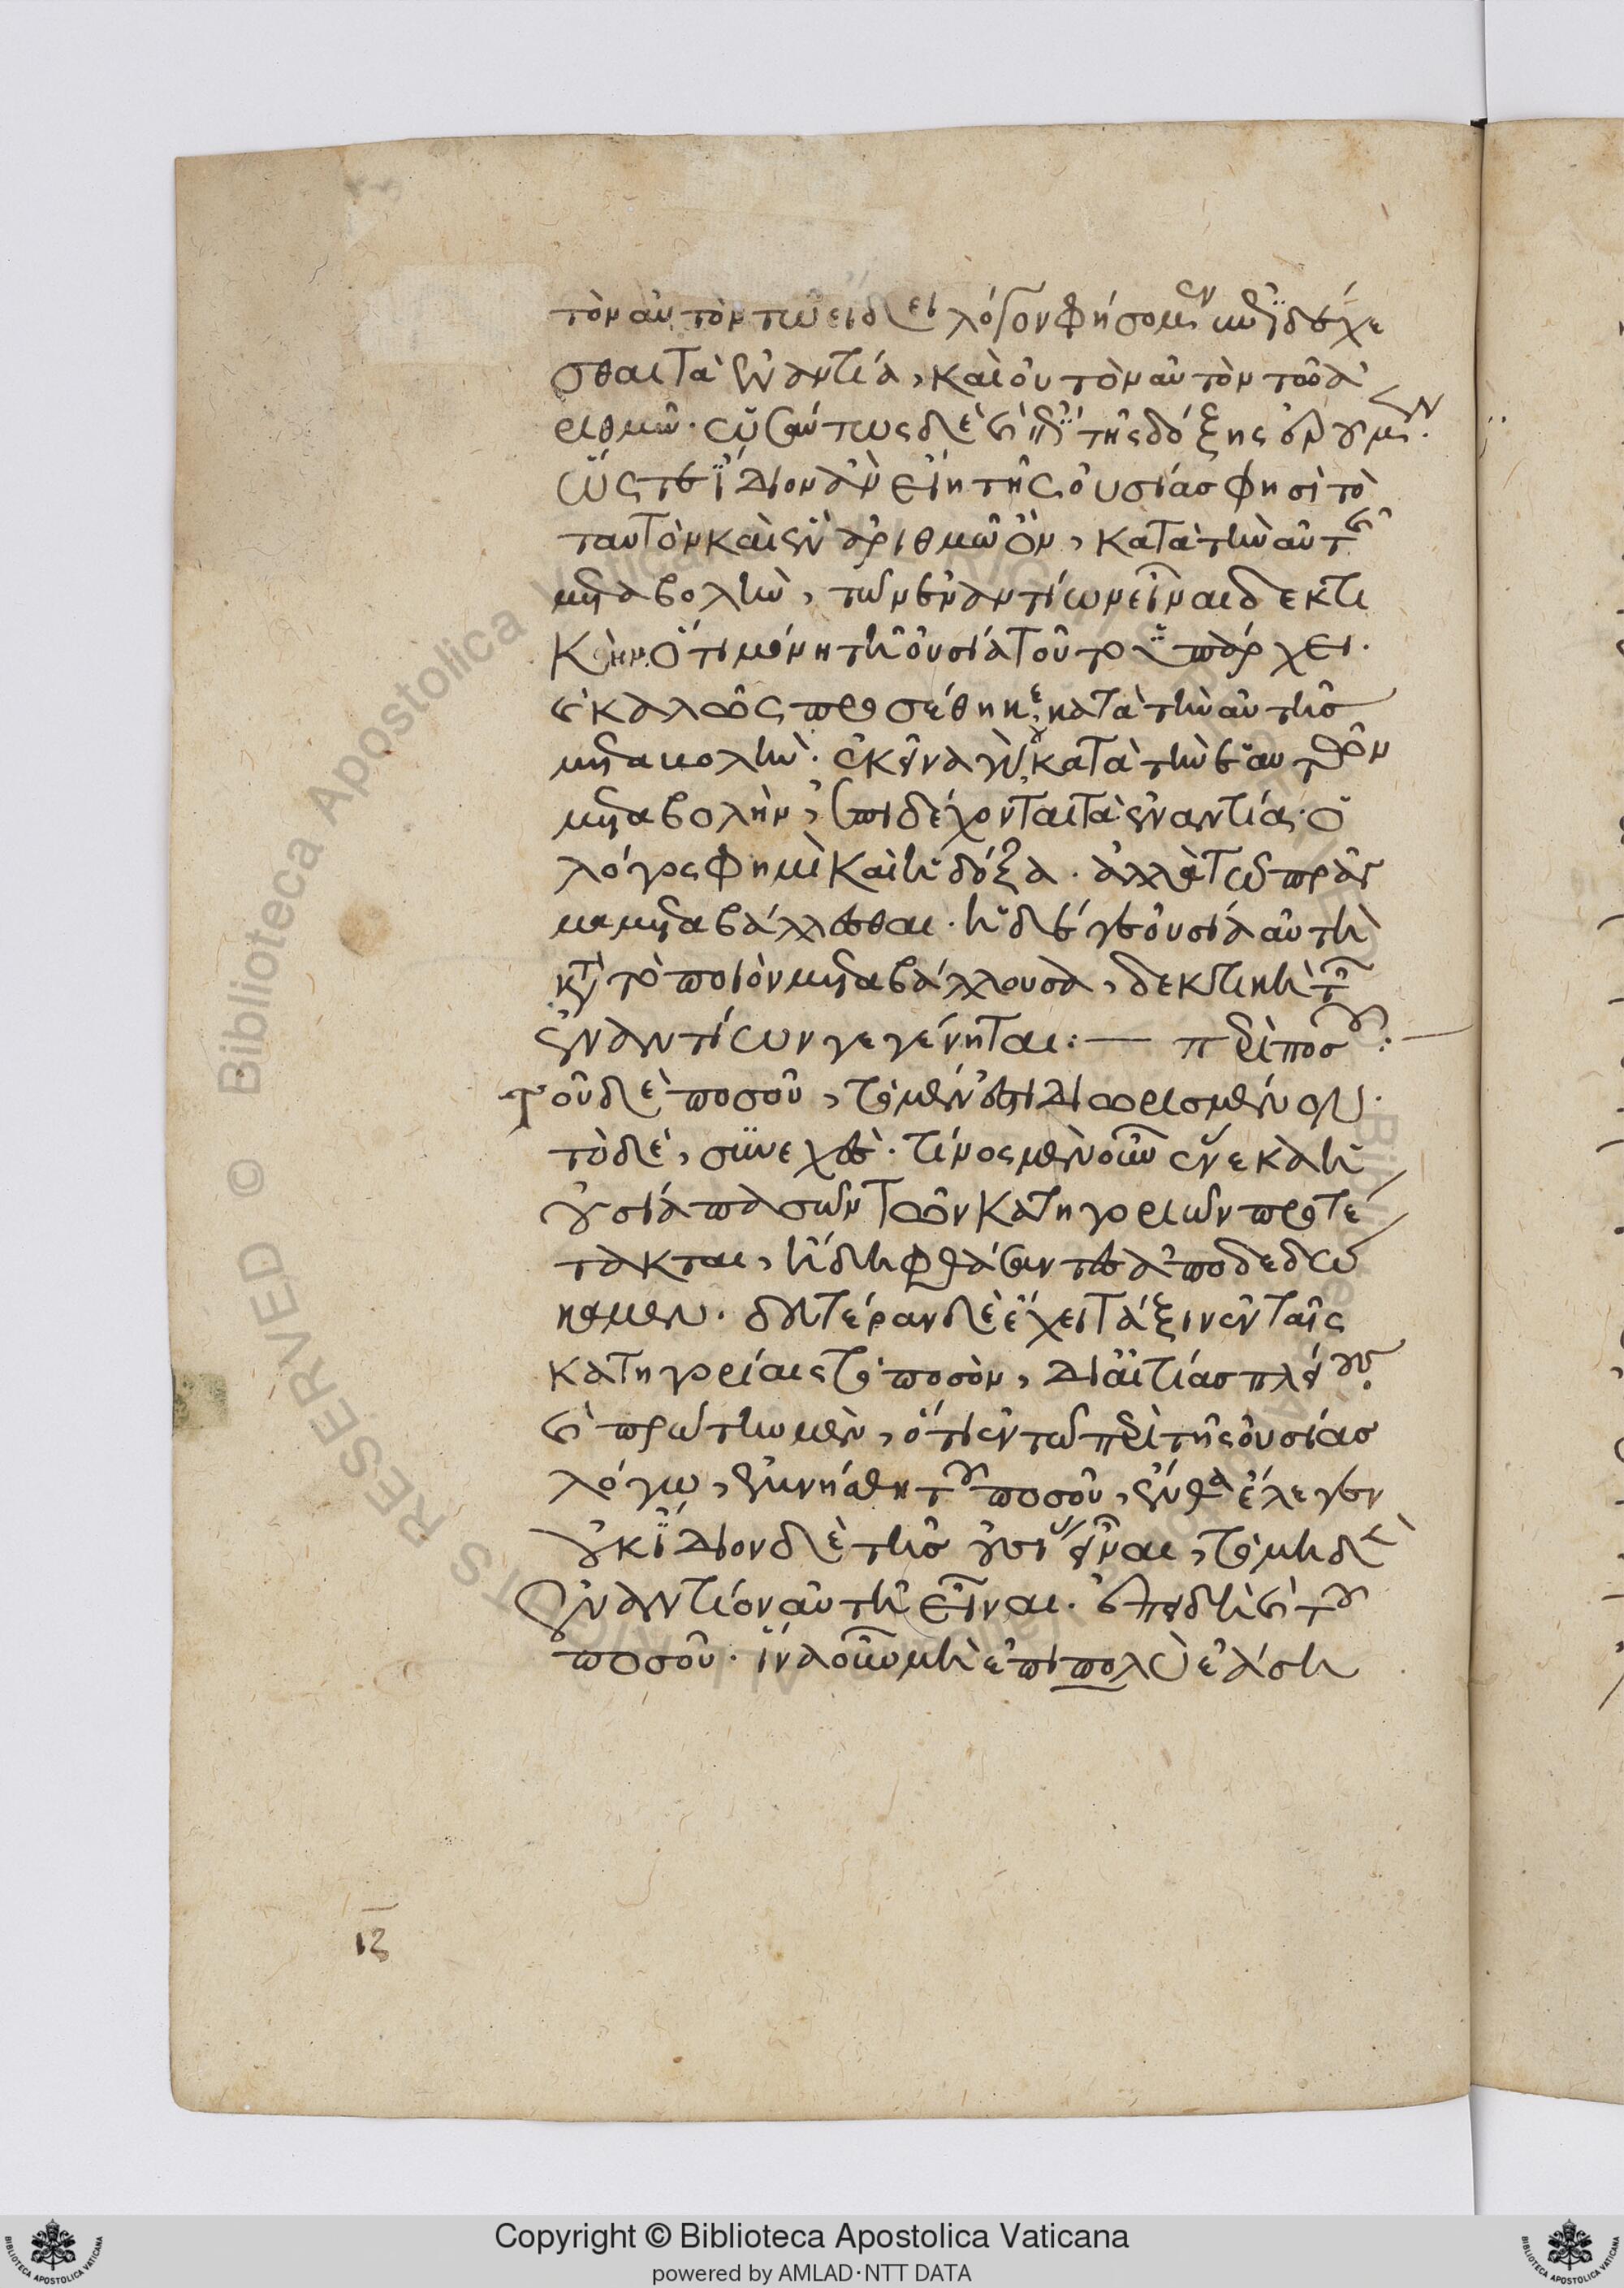 τὸν αὐτὸν τῶ εἴδει λόγον φήσομεν ἐπιδέχε
σθαι τὰ ἐναντία, καὶ οὐ τὸν αὐτὸν τῶ ἀ
ριθμῶ. ὡσαύτως δὲ καὶ ἐπὶ τῆς δόξης ἐροῦμεν.
ὥστε ἴδιον ἂν εἴη τῆς οὐσίας φησὶ τὸ
ταυτὸν καὶ ἓν ἀριθμῶ ὂν, κατὰ τὴν αὐτῆς
μεταβολὴν, τῶν ἐναντίων εἶναι δεκτι
κὴν. ὅτι μόνη τῆ οὐσία τοῦτο ὑπάρχει.
καὶ καλῶς προσέθηκε, κατὰ τὴν αὐτῆς
μεταβολὴν. ἐκεῖνα γὰρ οὐ κατὰ τὴν ἑαυτῶν
μεταβολὴν, ἐπιδέχονται τὰ ἐναντία. ὁ
λόγος φημὶ καὶ ἡ δόξα. ἀλλὰ τῶ πράγ
μα μεταβάλλεσθαι. ἡ δέ γε οὐσία αὐτὴ
κατὰ τὸ ποιὸν μεταβάλλουσα, δεκτικὴ τῶν
ἐναντίων γεγένηται:— περὶ ποσοῦ:—
Τοῦ δὲ ποσοῦ, τὸ μέν ἐστι διωρισμένον.
τὸ δὲ, συνεχὲς. τίνος μὲν οὖν ἕνεκα ἡ
οὐσία πασῶν τῶν κατηγοριῶν προτέ
τακται, ἤδη φθάσαντες ἀποδεδώ
καμεν. δευτέραν δὲ ἔχει τάξιν ἐν ταῖς
κατηγορίαις τὸ ποσὸν, δι' αἰτίας πλείους.
καὶ πρώτην μὲν, ὅτι ἐν τῶ περὶ τῆς οὐσίας
λόγω, ἐμνήσθη τοῦ ποσοῦ, ἔνθα ἔλεγεν
οὐκ ἴδιον δὲ τῆς οὐσίας εἶναι, τὸ μηδὲν
ἐναντίον αὐτῆ εἶναι. ἐπειδὴ καὶ τοῦ
ποσοῦ. ἵνα οὖν μὴ ἐπιπολὺ ἐάση
ιζ
Copyright © Biblioteca Apostolica Vaticana
powered by AMLAD·NTT DATA